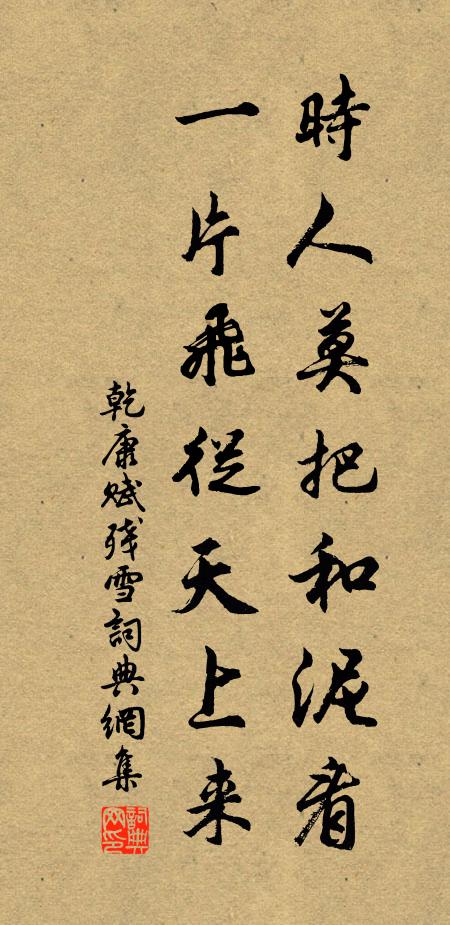 時人莫把和泥看
一片飛從天上来
乾康赋殘雪詞典網集
詞典網印